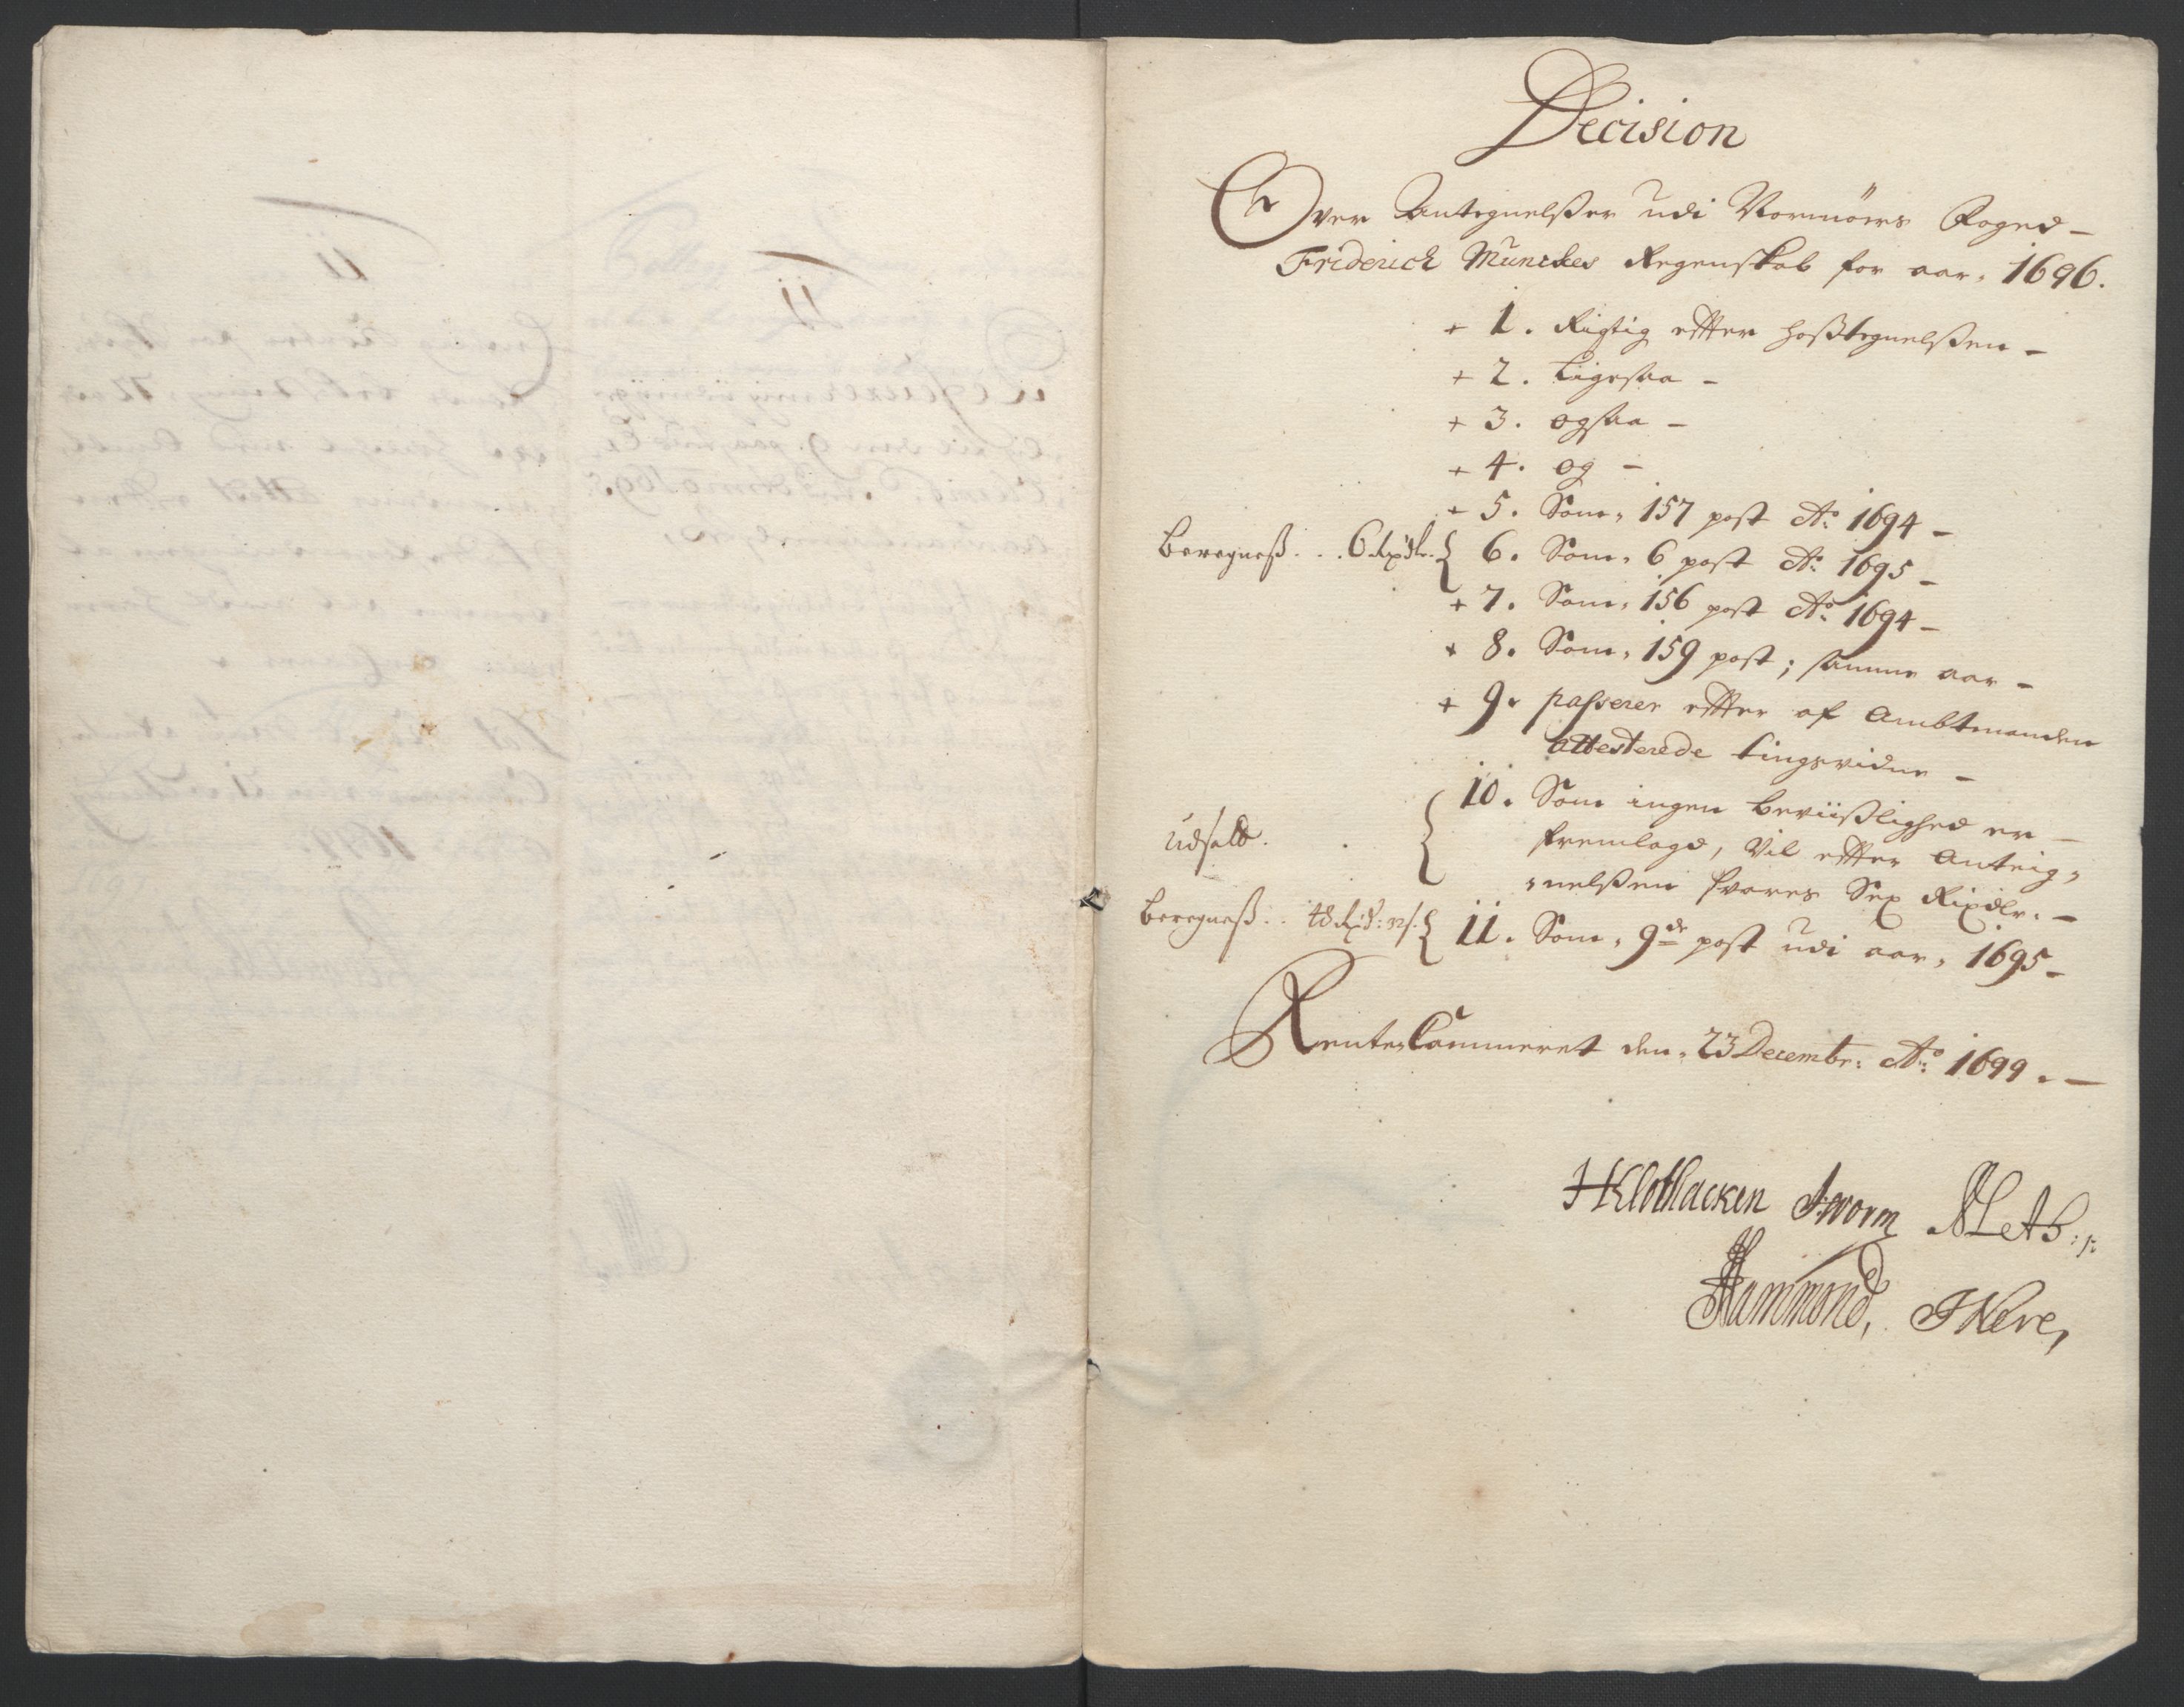 Decision
Over Antegnelßer udi Normöers Foged
Friderich Munckes Regenskab for aar 1696.
+ 1. Rigtig effter hoßtegnelßen
+ 2. Ligesaa
+ 3. ogsaa
+ 4. og
+ 5. Som 157 post Ao 1694
Beregneß . . . 6 Rixdlr. { 6. Som 6 post Ao 1695
+ 7. Som 156 post Ao 1694
+ 8. Som 159 post; samme aar
+ 9. passerer effter af Ambtmanden
attesterede tingsvidne
10. Som ingen beviißlighed er
udsatt. { fremlagd, Vil effter Anteig,
,nelßen svares Sex Rixdlr.
Beregneß . . { 11. Som 9de post udi aar 1695
RenteCammeret den 23 Decembr: Ao 1699.
HKlothacken Jworm
Hammond,